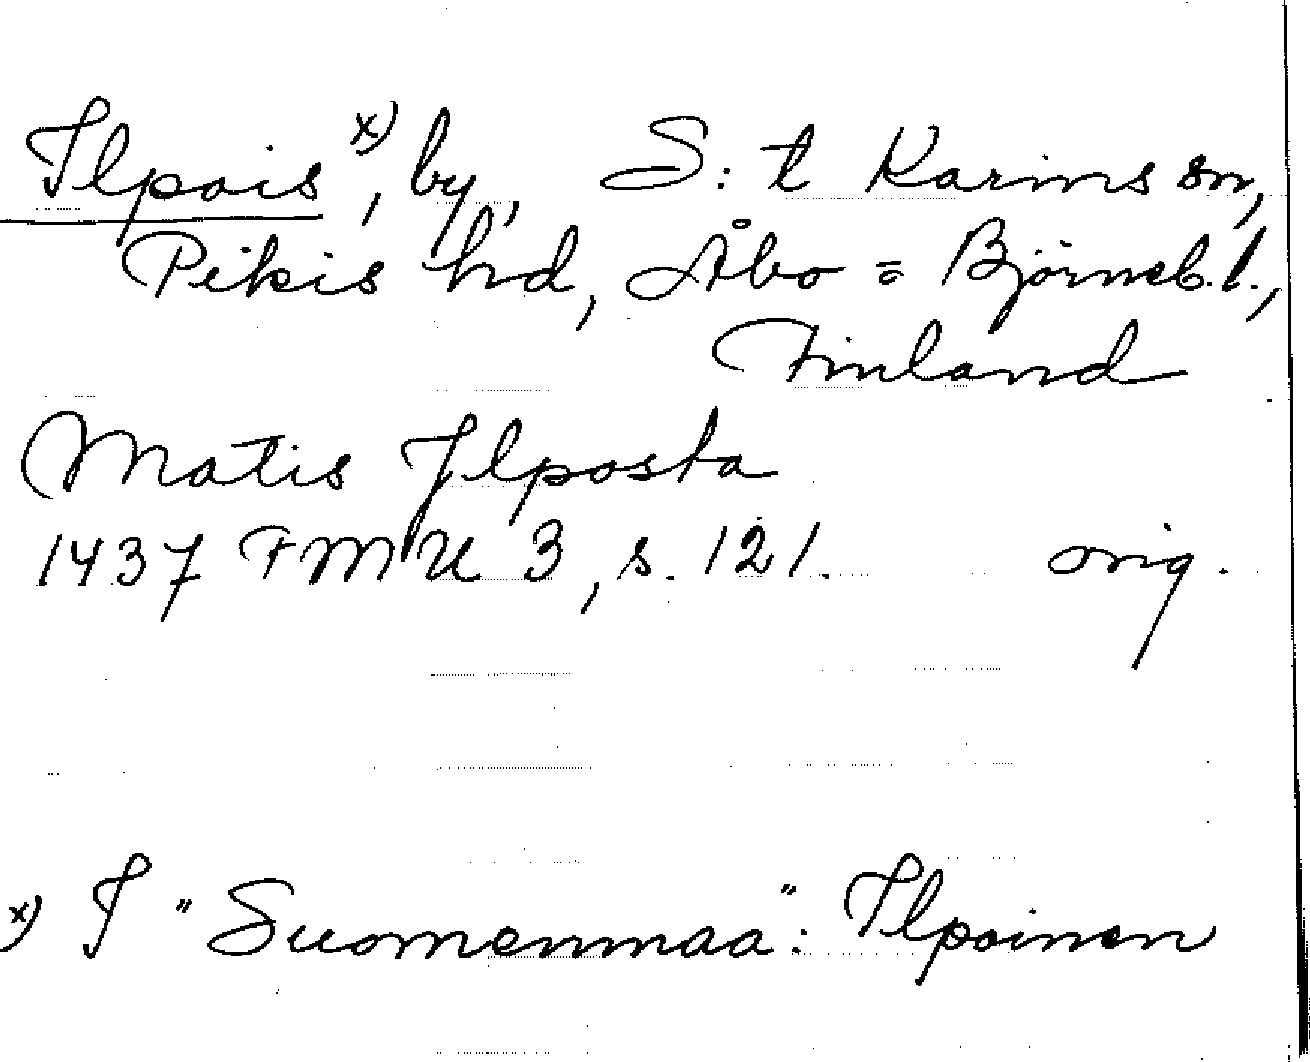 Ilpois x), by, S:t Karins sn,
Pikis hd, Åbo = Björneb. l.,
Finland
Matis Ilposta
1437 FMU 3, s. 121. orig.
x) I "Suomenmaa": Ilpoinen